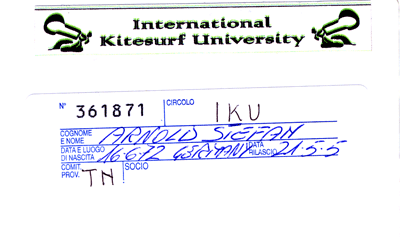 International
Kitesurf University
N° 361871 CIRCOLO IKU
COGNOME E NOME ARNOLD STEFAN
DATA E LUOGO DI NASCITA 16.6.72 GERMANY DATA RILASCIO 21.5.5
COMIT. PROV. TN SOCIO